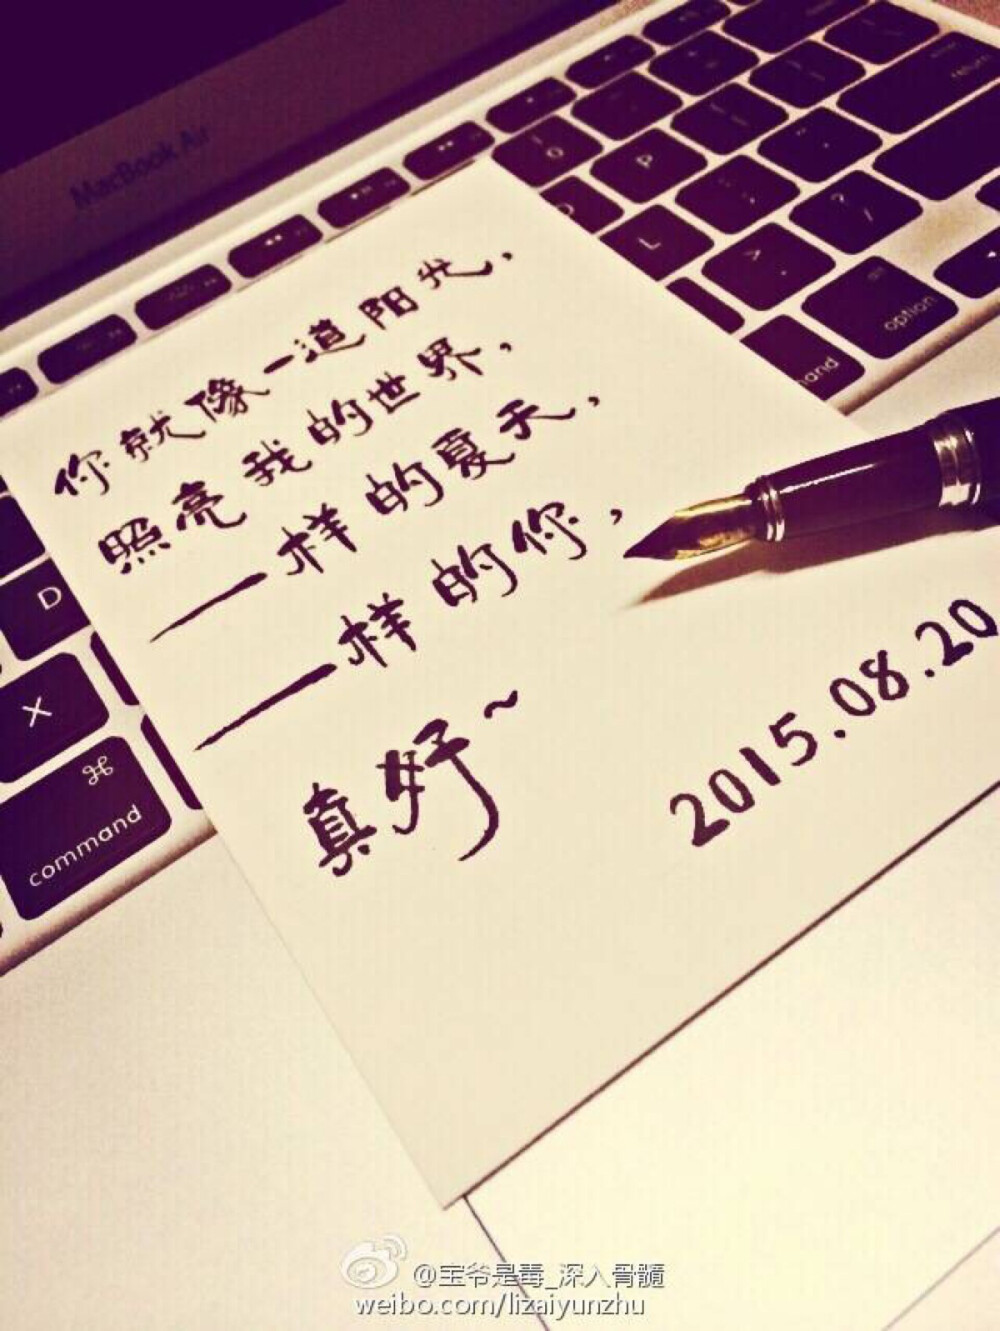 MacBook Air
你就像一道阳光，
照亮我的世界，
一样的夏天，
一样的你，
真好~
2015.08.20
O
P
L
return
option
D
X
⌘
command
@宝爷是毒_深入骨髓
weibo.com/lizaiyunzhu